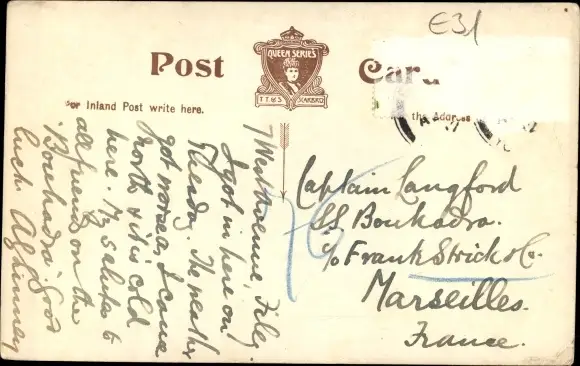 E31
Post Card
QUEEN SERIES
T.T.&S SCARBRO
For Inland Post write here.
the Address
7 West Avenue, Filey
I got in here on
Tuesday. The weather
got worse as I came
North & it is cold
here. My salutes to
all friends on the
'Boukadra'. Good
luck.
Captain Langford
S.S. Boukadra.
c/o Frank Strick & Co.
Marseilles.
France.